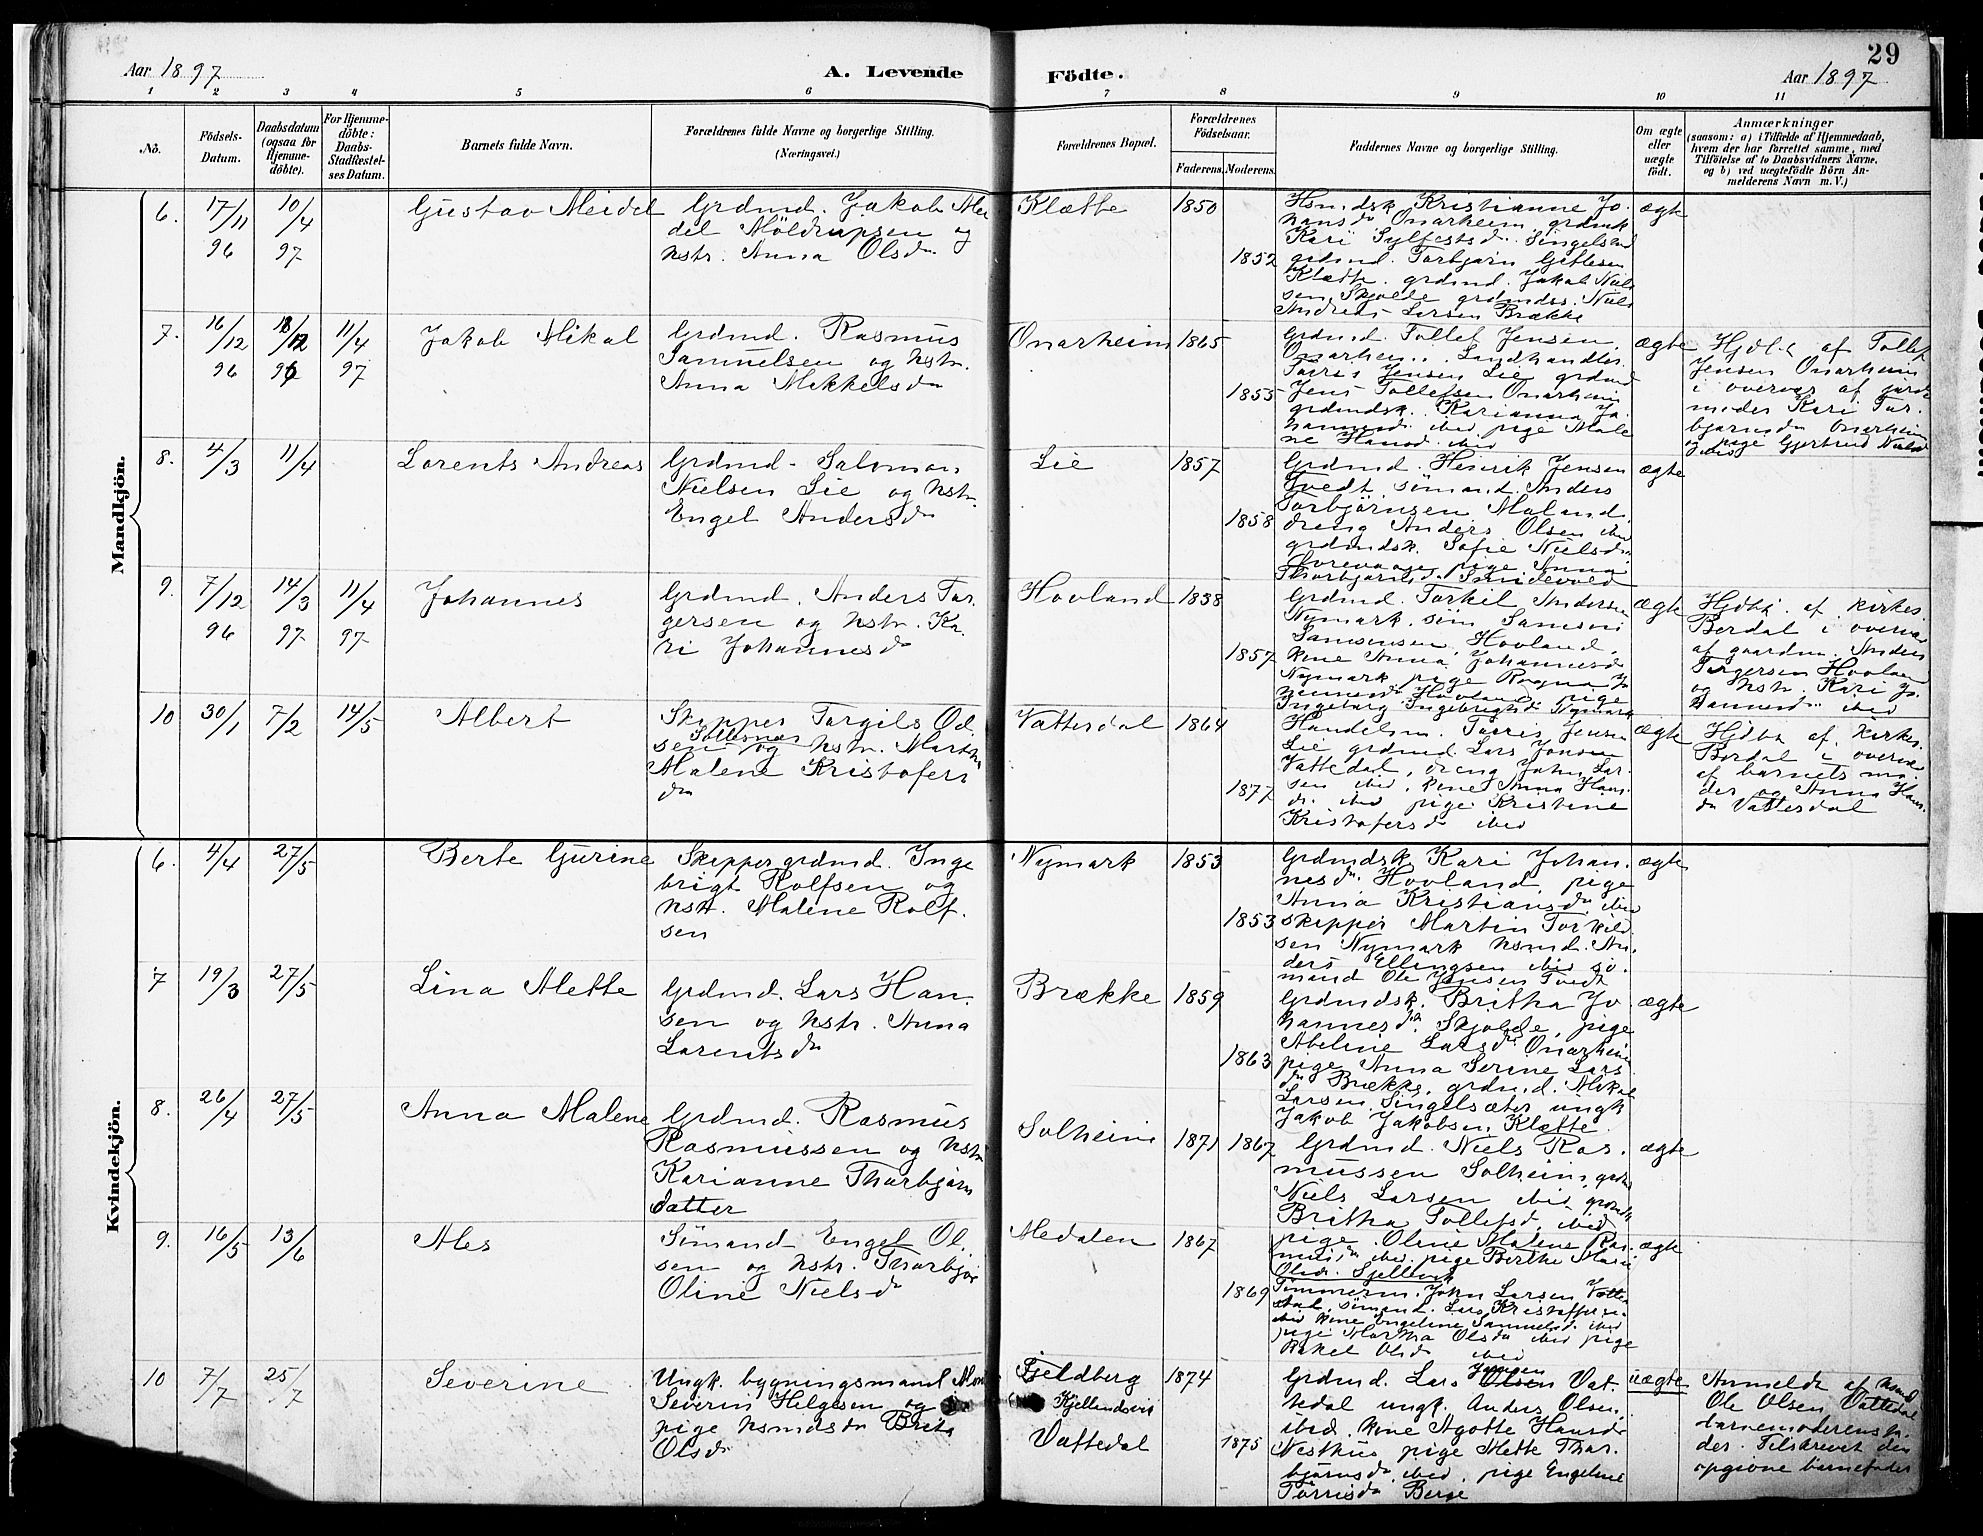 29
Aar 1897
A. Levende Födte.
Aar 1897
1 2 3 4 5 6 7 8 9 10 11
No.
Födsels-
Datum.
Daabsdatum
(ogsaa for
Hjemme-
döbte).
For Hjemme-
döbte:
Daabs-
Stadfæstel-
ses Datum.
Barnets fulde Navn.
Forældrenes fulde Navne og borgerlige Stilling.
(Næringsvei.)
Forældrenes Bopæl.
Forældrenes
Födselsaar.
Faderens. Moderens.
Faddernes Navne og borgerlige Stilling.
Om ægte
eller
uægte
födt.
Anmærkninger
(saasom: a) i Tilfælde af Hjemmedaab,
hvem der har forrettet samme, med
Tilföielse af to Daabsvidners Navne,
og b) ved uægtefödte Börn An-
melderens Navn m. V.)
Mandkjön.
6. 17/11 96
10/4 97
Gustav Meidel
Grdmd. Jakob Mei
del Möldrupsen og
hstr. Anna Olsdr
Klætte
1850
1852
Hsmdsk Kristianne Jo.
hansdr Onarheim grdmsk
Kari Sylfestsdr
grdmd. Torbjørn Gitlesen
Klætte. grdmd. Jakob Niel
sen Skjolde grdmds. Niels
Andreas Larsen Brække
ægte
7. 16/12 96
18/12 96
11/4 97
Jakob Mikal
Grdmd. Rasmus
Samuelsen og hstr.
Anna Mikkelsdr
Onarheim
1865
1855
Grdmd. Tollef Jensen
Onarheim. Landhandler
Tørris Jensen Lie grdmd
Jens Tollefsen Onarheim
grdmdsk. Karianna Jo.
hannesdr ibid pige Male
ne Hansdr ibid
ægte
Hjdbt af Tollef
Jensen Onarheim
i overvær af jorde
moder Kari Tor.
bjørnsdr Onarheim
og pige Gjertrud Nielsdr
ibid
8. 4/3
11/4
Lorents Andreas
Grdmd. Salomon
Nielsen Lie og hstr.
Engel Andersdr
Lie
1857
1858
Grdmd. Henrik Jensen
Tvedt, sømand Anders
Torbjørnsen Maland,
dreng Anders Olsen ibid
grdmdsk. Sofie Nielsdr
pige Anna
Thorbjørnsdr
ægte
9. 7/12 96
14/3 97
11/4 97
Johannes
Grdmd. Anders Tor.
gersen og hstr. Ka.
ri Johannesdr
Hovland
1838
1857
Grdmd. Torkil Andersen
Nymark, søm Samson
Samsonsen Hovland,
kone Anna Johannesdr
Nymark pige Ragna Jo
hannesdr Hovland pige
Ingeborg Ingebrigtsdr Nymark
ægte
Hjdbt. af kirkes.
Bordal i overvær
af gaardm. Anders
Torgersen Hovland
og hstr. Kari Jo.
hannesdr ibid
10 30/1
7/2
14/5
Albert
Skipper Torgils Ol.
sen Sollesnæs og hstr. Martha
Malene Kristofers
dr
Vattesdal
1864
1877
Handelsm. Tørris Jensen
Lie grdmd. Lars Jonsen
Vattedal, dreng John Lar.
sen ibid, kone Anna Hans
dr ibid pige Kristine
Kristofersdr ibid
ægte
Hjdbt af Kirkes.
Bordal i overvær
af barnets mo.
der og Anna Hans.
dr Vattesdal
Kvindekjön.
6. 4/4
27/5
Berte Gurine
Skipper grdmd. Inge
brigt Rolfsen og
hstr. Malene Rolf.
sen
Nymark
1853
1853
Grdmdsk Kari Johan.
nesdr Hovland, pige
Anna Kristiansdr ibid
skipper Martin Torkild
sen Nymark hsmd. An.
ders Ellingsen ibid sø.
mand Ole Jensen Tvedt
ægte
7 19/3
27/5
Lina Mette
Grdmd. Lars Han.
sen og hstr. Anna
Larentsdr
Brække
1859
1863
Grdmdsk. Britha Jo
hannesdr Skjolde, pige
Abeline Larsdr Onarheim
pige Anna Serine Lars
dr Brække, grdmd. Mikal
Larsen Singelsæter ungk
Jakob Jakobsen Klætte.
ægte
8. 26/4
27/5
Anna Malene
Grdmd. Rasmus
Rasmussen og hstr
Karianne Thorbjørn
datter
Solheim
1871
1867
Grdmd. Niels Ras.
mussen Solheim, grdm
Niels Larsen ibid, grdmdsk
Britha Tollefsdr ibid
pige Oline Malene Ras.
musdr ibid, pige Berthe Marie
Olsdr
ægte
9. 16/5
13/6
Ales
Sømand Engel Ol.
sen og hstr. Thorbjør
Oline Nielsdr
Medalen
1867
1869
Tømmerm. John Larsen Vatte
dal, sømand Lars Kristoffersen
ibid kone Engeline Samuelsdr ibid
pige Martha Olsdr ibid pige
Rakel Olsdr ibid
ægte
10 7/7
25/7
Severine
Ungk. bygningsmand
Severin Helgesen og
pige hsmdsdr Brita
Olsdr
Fjeldberg
Vattedal
1874
1875
Grdmd. Lars Jonsen Vat.
tedal ungk. Anders Olsen,
ibid. kone Agotte Hansdr
Nesthus pige Mette Thor.
bjørnsdr ibid, pige Engeline
Tørrisdr Berge
uægte
Anmeldt af hsmd
Ole Olsen Vattedal
barnemoderens fa.
der. Tilskrevet den
opgivne barnefader